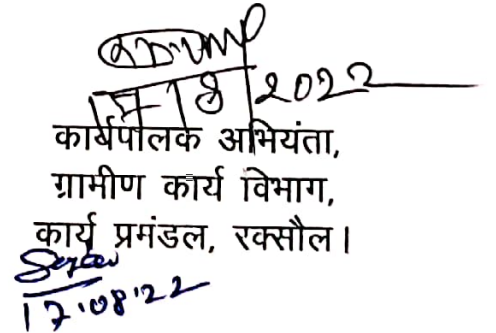 17/8/2022
कार्यपालक अभियंता,
ग्रामीण कार्य विभाग,
कार्य प्रमंडल, रक्सौल।
17.08.22